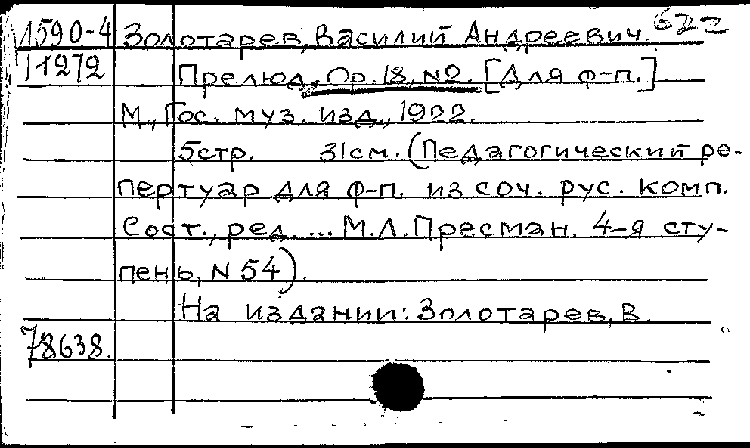 1590-4 Золотарев, Василий Андреевич. 622
11272 Прелюд, Ор.18, №2. [Для ф-п.]
М., Гос. муз. изд., 1922.
5стр. 31см. (Педагогический ре-
пертуар для ф-п. из соч. рус. комп.
Сост., ред. ... М.Л.Пресман. 4-я сту-
пень, N 54).
На издании: Золотарев, В.
78638.